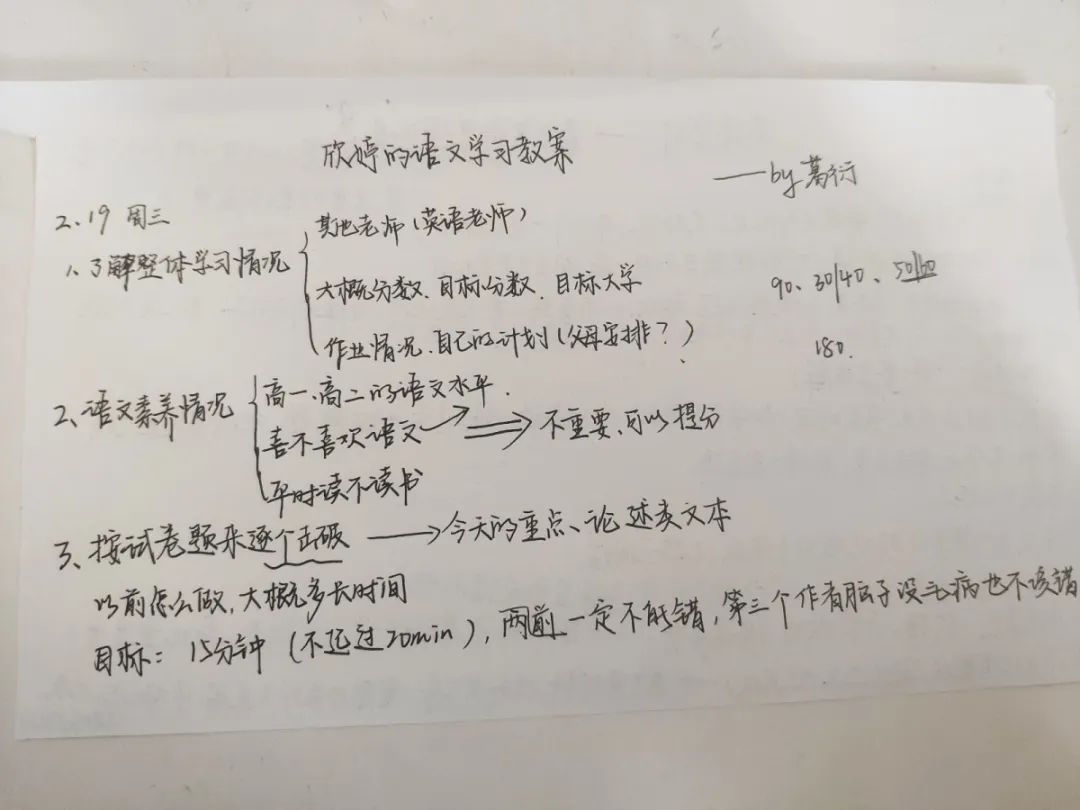 欣婷的语文学习教案
——by葛衍
2、19 周三
1、了解整体学习情况
其他老师（英语老师）
大概分数、目标分数、目标大学
90、30/40、50/60
作业情况、自己的计划（父母安排？）
180.
2、语文素养情况
高一、高二的语文水平.
喜不喜欢语文
不重要、可以提分
平时读不读书
3、按试卷题来逐个击破 → 今天的重点、论述类文本
以前怎么做，大概多长时间
目标：15分钟（不超过20min），两前一定不能错，第三个作者脑子没毛病也不该错